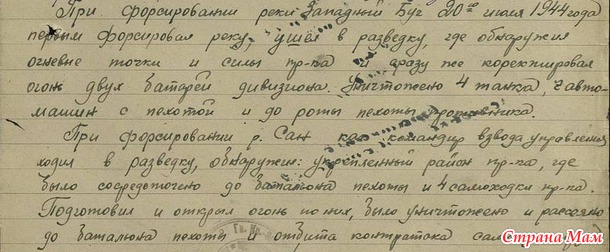 При форсировании реки Западный Буг 20го июля 1944 года
первым форсировал реку, ушел в разведку, где обнаружил
огневые точки и силы пр-ка сразу же коректировал
огонь двух батарей дивизиона. Уничтожено 4 танка, авто-
машин с пехотой и до роты пехоты противника.
При форсировании р. Сан как командир взвода управления
ходил в разведку, обнаружил: укрепленный район пр-ка, где
было сосредоточено до батальона пехоты и 4 самоходки пр-ка.
Подготовил и открыл огонь по них, было уничтожено и рассеяно
до батальона пехоты и отбита контратака
Страна Мам